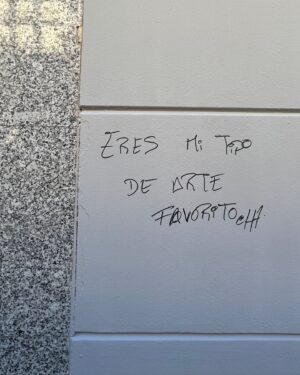 ERES MI TIPO
DE ARTE
FAVORITO